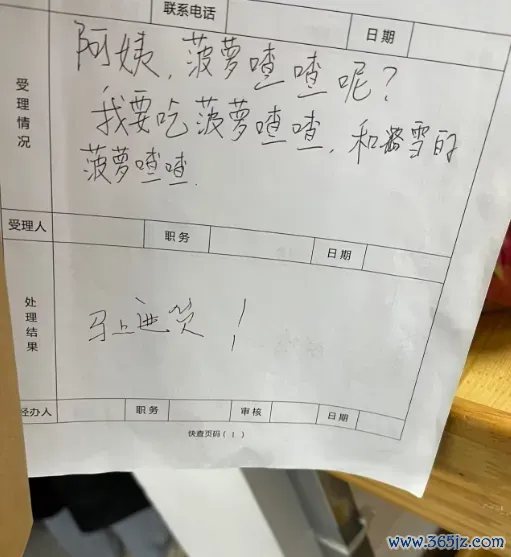 联系电话
日期
阿姨,菠萝喳喳呢?
受理情况
我要吃菠萝喳喳,和路雪的
菠萝喳喳.
受理人 职务 日期
处理结果
马上进货!
经办人 职务 审核 日期
快查页码(1)
www.365jz.com